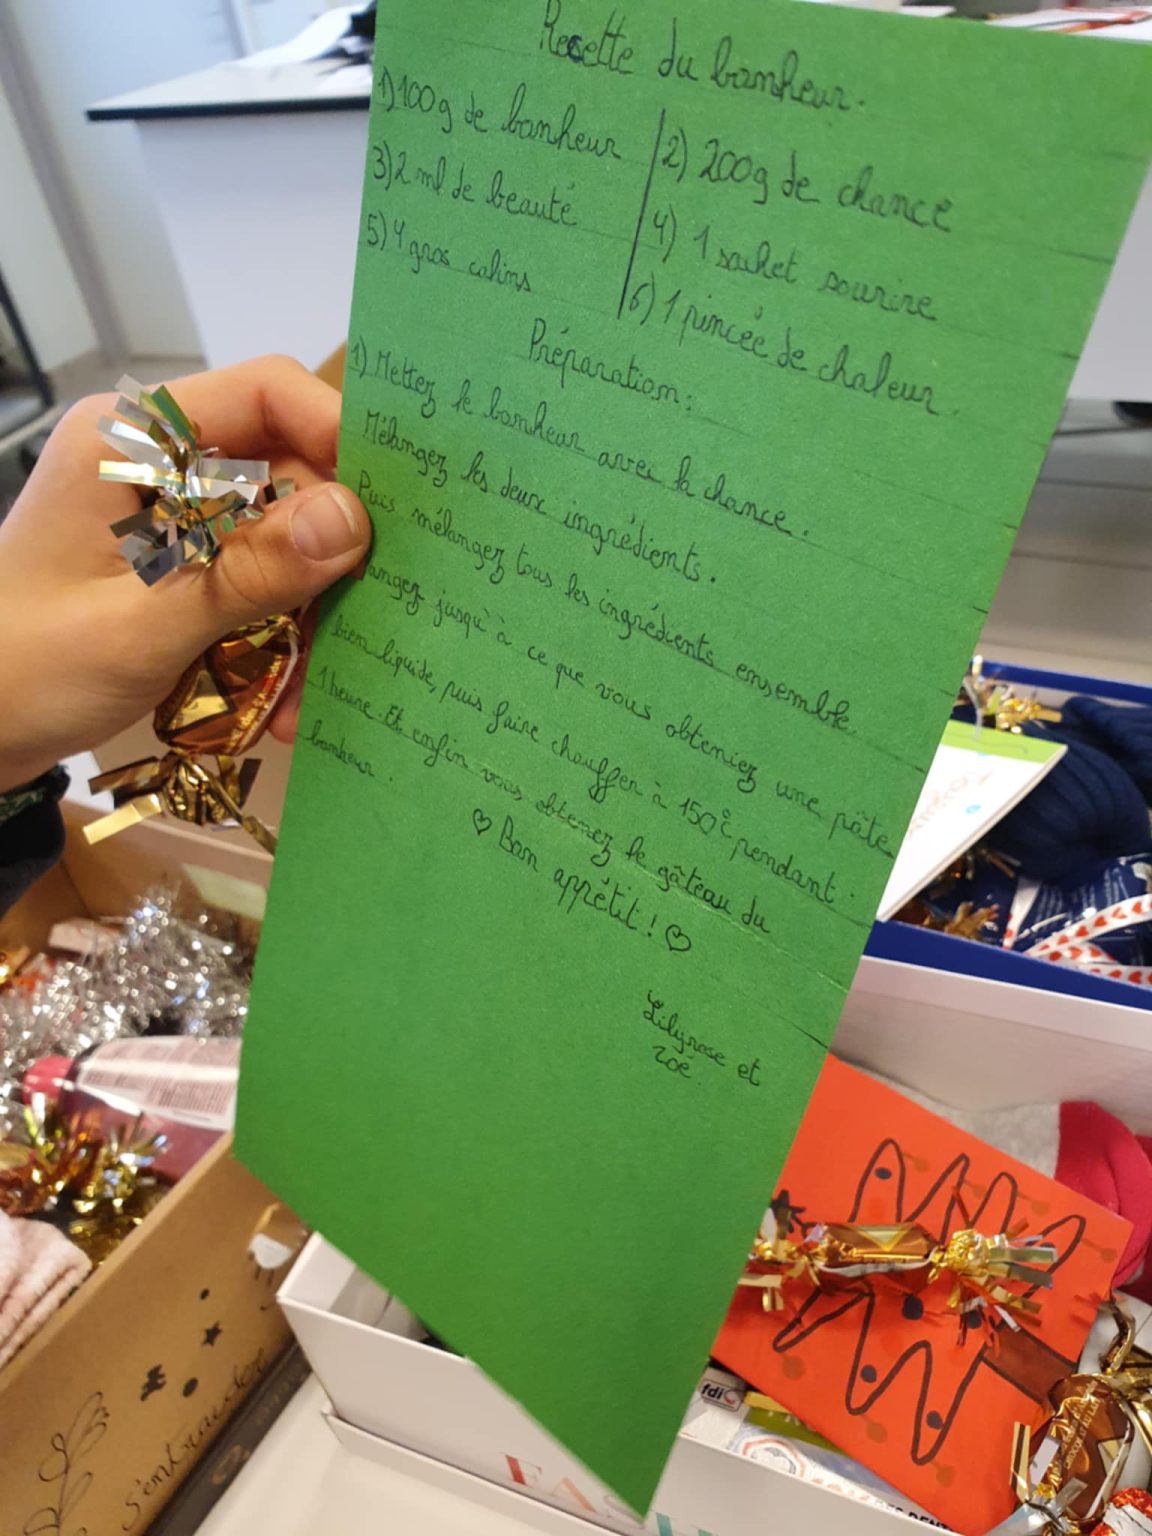 Recette du bonheur.
1) 100g de bonheur
2) 200g de chance
3) 2 ml de beauté
4) 1 sachet sourire
5) 4 gros calins
6) 1 pincée de chaleur.
Préparation:
1) Mettez le bonheur avec la chance.
Mélangez les deux ingrédients.
Puis mélangez tous les ingrédients ensemble.
angez jusqu'à ce que vous obteniez une pâte
bien liquide, puis faire chauffer à 150°c pendant
1 heure. Et enfin vous obtenez le gâteau du
bonheur.
♡ Bon appétit ! ♡
Lilyrose et
Zoé.
S'entraider
fdi